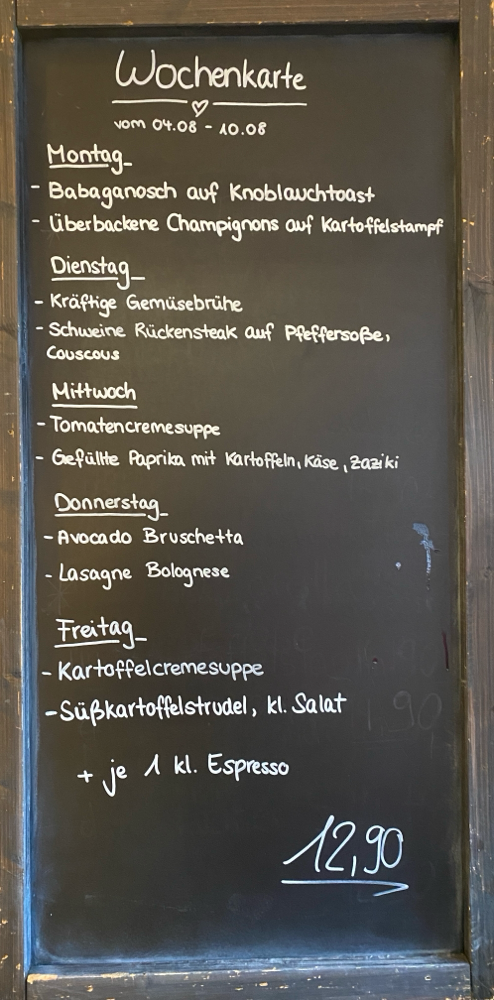 Wochenkarte
vom 04.08 - 10.08
Montag
- Babaganosch auf Knoblauchtoast
- Überbackene Champignons auf Kartoffelstampf
Dienstag
- Kräftige Gemüsebrühe
- Schweine Rückensteak auf Pfeffersoße,
Couscous
Mittwoch
- Tomatencremesuppe
- Gefüllte Paprika mit Kartoffeln, Käse, Zaziki
Donnerstag
- Avocado Bruschetta
- Lasagne Bolognese
Freitag
- Kartoffelcremesuppe
- Süßkartoffelstrudel, kl. Salat
+ je 1 kl. Espresso
12,90